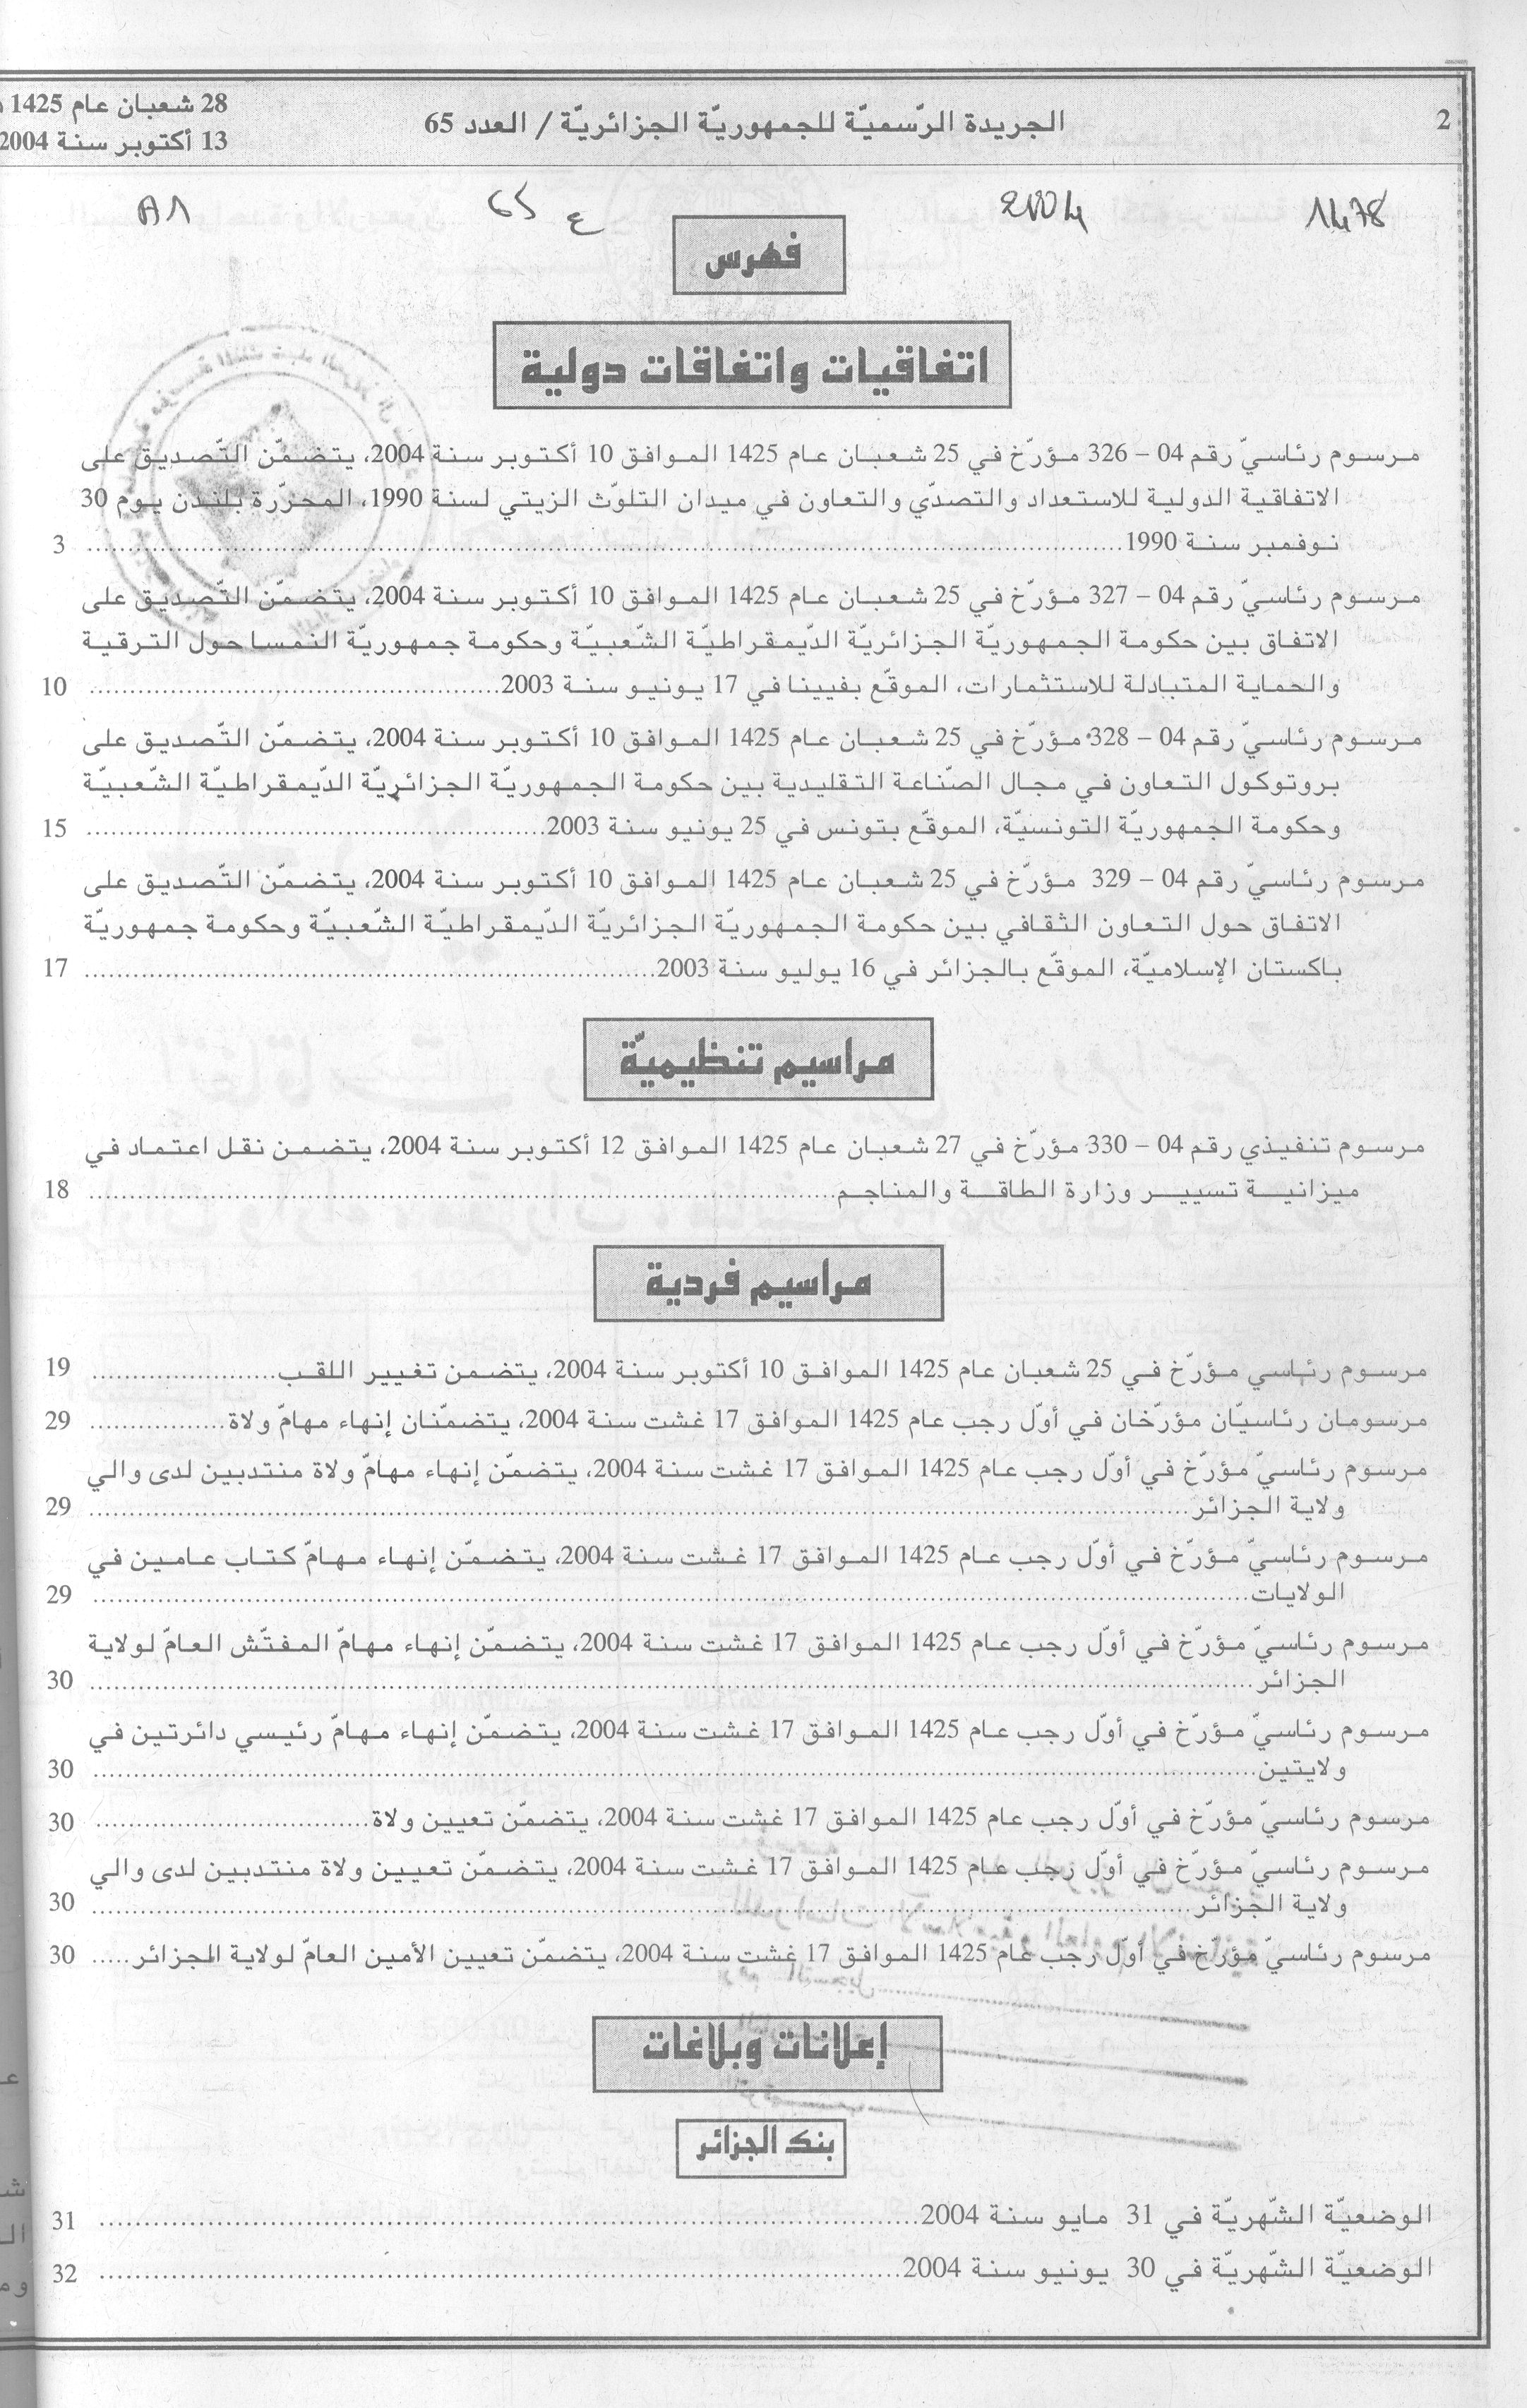 2
الجريدة الرّسميّة للجمهوريّة الجزائريّة / العدد 65
28 شعبان عام 1425
13 أكتوبر سنة 2004
1478 2004 ع 65 A1
فهرس
اتفاقيات واتفاقات دولية
مرسوم رئاسيّ رقم 04 – 326 مؤرّخ في 25 شعبان عام 1425 الموافق 10 أكتوبر سنة 2004، يتضمّن التّصديق على
الاتفاقية الدولية للاستعداد والتصدّي والتعاون في ميدان التلوّث الزيتي لسنة 1990، المحرّرة بلندن يوم 30
نوفمبر سنة 1990........................ 3
مرسوم رئاسيّ رقم 04 – 327 مؤرّخ في 25 شعبان عام 1425 الموافق 10 أكتوبر سنة 2004، يتضمّن التّصديق على
الاتفاق بين حكومة الجمهوريّة الجزائريّة الدّيمقراطيّة الشّعبيّة وحكومة جمهوريّة النمسا حول الترقية
والحماية المتبادلة للاستثمارات، الموقّع بفيينا في 17 يونيو سنة 2003........................ 10
مرسوم رئاسيّ رقم 04 – 328 مؤرّخ في 25 شعبان عام 1425 الموافق 10 أكتوبر سنة 2004، يتضمّن التّصديق على
بروتوكول التعاون في مجال الصّناعة التقليدية بين حكومة الجمهوريّة الجزائريّة الدّيمقراطيّة الشّعبيّة
وحكومة الجمهوريّة التونسيّة، الموقّع بتونس في 25 يونيو سنة 2003........................ 15
مرسوم رئاسيّ رقم 04 – 329 مؤرّخ في 25 شعبان عام 1425 الموافق 10 أكتوبر سنة 2004، يتضمّن التّصديق على
الاتفاق حول التعاون الثقافي بين حكومة الجمهوريّة الجزائريّة الدّيمقراطيّة الشّعبيّة وحكومة جمهوريّة
باكستان الإسلاميّة، الموقّع بالجزائر في 16 يوليو سنة 2003........................ 17
مراسيم تنظيميّة
مرسوم تنفيذي رقم 04 – 330 مؤرّخ في 27 شعبان عام 1425 الموافق 12 أكتوبر سنة 2004، يتضمن نقل اعتماد في
ميزانية تسيير وزارة الطاقة والمناجم........................ 18
مراسيم فردية
مرسوم رئاسي مؤرّخ في 25 شعبان عام 1425 الموافق 10 أكتوبر سنة 2004، يتضمن تغيير اللقب........................ 19
مرسومان رئاسيّان مؤرّخان في أوّل رجب عام 1425 الموافق 17 غشت سنة 2004، يتضمّنان إنهاء مهامّ ولاة........................ 29
مرسوم رئاسيّ مؤرّخ في أوّل رجب عام 1425 الموافق 17 غشت سنة 2004، يتضمّن إنهاء مهامّ ولاة منتدبين لدى والي
ولاية الجزائر........................ 29
مرسوم رئاسيّ مؤرّخ في أوّل رجب عام 1425 الموافق 17 غشت سنة 2004، يتضمّن إنهاء مهامّ كتاب عامين في
الولايات........................ 29
مرسوم رئاسيّ مؤرّخ في أوّل رجب عام 1425 الموافق 17 غشت سنة 2004، يتضمّن إنهاء مهامّ المفتّش العامّ لولاية
الجزائر........................ 30
مرسوم رئاسيّ مؤرّخ في أوّل رجب عام 1425 الموافق 17 غشت سنة 2004، يتضمّن إنهاء مهامّ رئيسي دائرتين في
ولايتين........................ 30
مرسوم رئاسيّ مؤرّخ في أوّل رجب عام 1425 الموافق 17 غشت سنة 2004، يتضمّن تعيين ولاة........................ 30
مرسوم رئاسيّ مؤرّخ في أوّل رجب عام 1425 الموافق 17 غشت سنة 2004، يتضمّن تعيين ولاة منتدبين لدى والي
ولاية الجزائر........................ 30
مرسوم رئاسيّ مؤرّخ في أوّل رجب عام 1425 الموافق 17 غشت سنة 2004، يتضمّن تعيين الأمين العامّ لولاية الجزائر..... 30
إعلانات وبلاغات
بنك الجزائر
الوضعيّة الشّهريّة في 31 مايو سنة 2004........................ 31
الوضعيّة الشّهريّة في 30 يونيو سنة 2004........................ 32